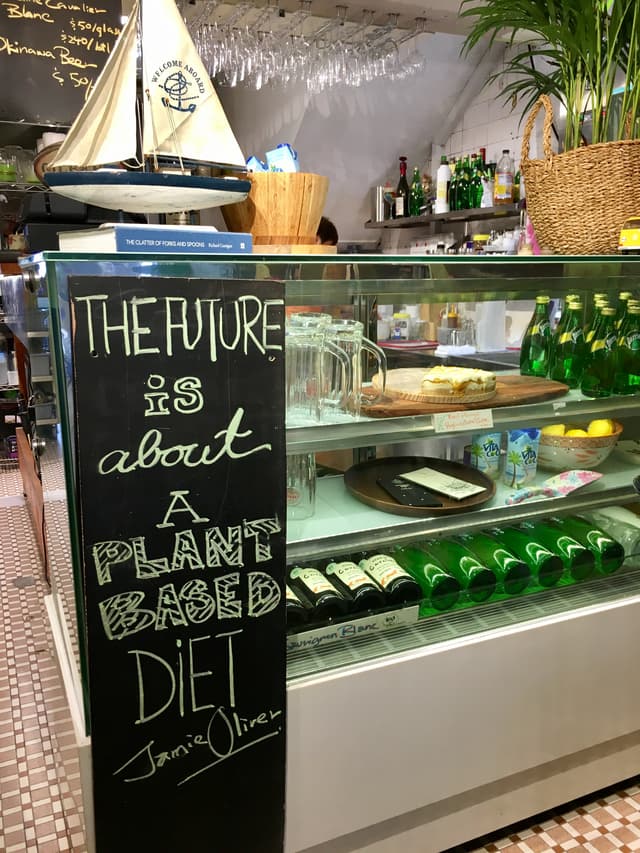 Blanc $50/glass
$240/btl
Okinawa Beer
$50/
WELCOME ABOARD
THE CLATTER OF FORKS AND SPOONS Richard Corrigan
THE FUTURE
is
about
A
PLANT
BASED
DiET
Jamie Oliver
VITA
COCO
Sauvignon Blanc